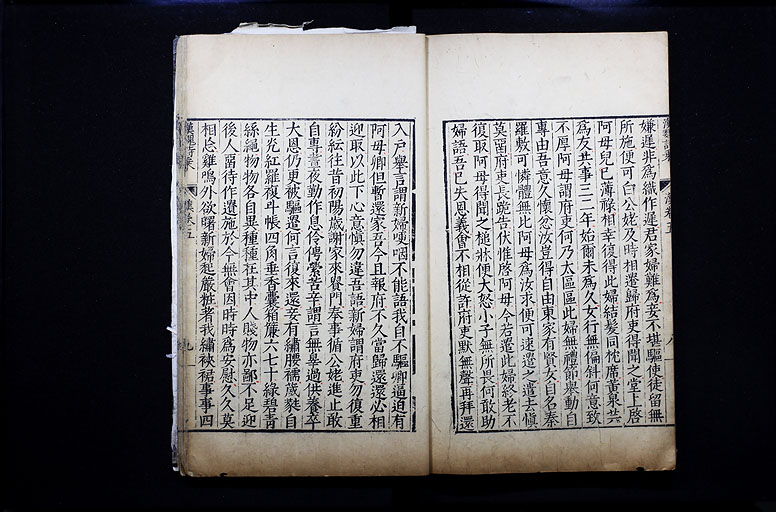 嫌遲非為織作遲君家婦難為妾不堪驅使徒留無
所施便可白公姥及時相遣歸府吏得聞之堂上啓
阿母兒已薄祿相幸復得此婦結髮同枕席黃泉共
為友共事三二年始爾未為久女行無偏斜何意致
不厚阿母謂府吏何乃太區區此婦無禮節舉動自
專由吾意久懷忿汝豈得自由東家有賢女自名秦
羅敷可憐體無比阿母為汝求便可速遣之遣去慎
莫留府吏長跪告伏惟啓阿母今若遣此婦終老不
復取阿母得聞之槌牀便大怒小子無所畏何敢助
婦語吾已失恩義會不相從許府吏默無聲再拜還
入戶舉言謂新婦哽咽不能語我自不驅卿逼迫有
阿母卿但暫還家吾今且報府不久當歸還還必相
迎取以此下心意慎勿違吾語新婦謂府吏勿復重
紛紜往昔初陽歲謝家來貴門奉事循公姥進止敢
自專晝夜勤作息伶俜縈苦辛謂言無辠過供養卒
大恩仍更被驅遣何言復來還妾有繡腰襦葳蕤自
生光紅羅複斗帳四角垂香囊箱簾六七十綠碧青
絲繩物物各自異種種在其中人賤物亦鄙不足迎
後人留待作遣施於今無會因時時為安慰久久莫
相忘雞鳴外欲曙新婦起嚴粧著我繡裌裙事事四